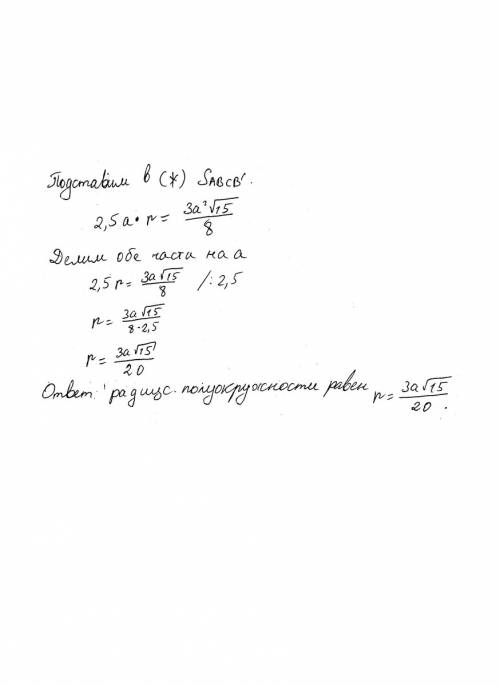 Подставим в (*) SABCB'.
2,5a·r = 3a²√15/8
Делим обе части на a
2,5r = 3a√15/8 /:2,5
r = 3a√15/8·2,5
r = 3a√15/20
Ответ: радиус полуокружности равен r = 3a√15/20.